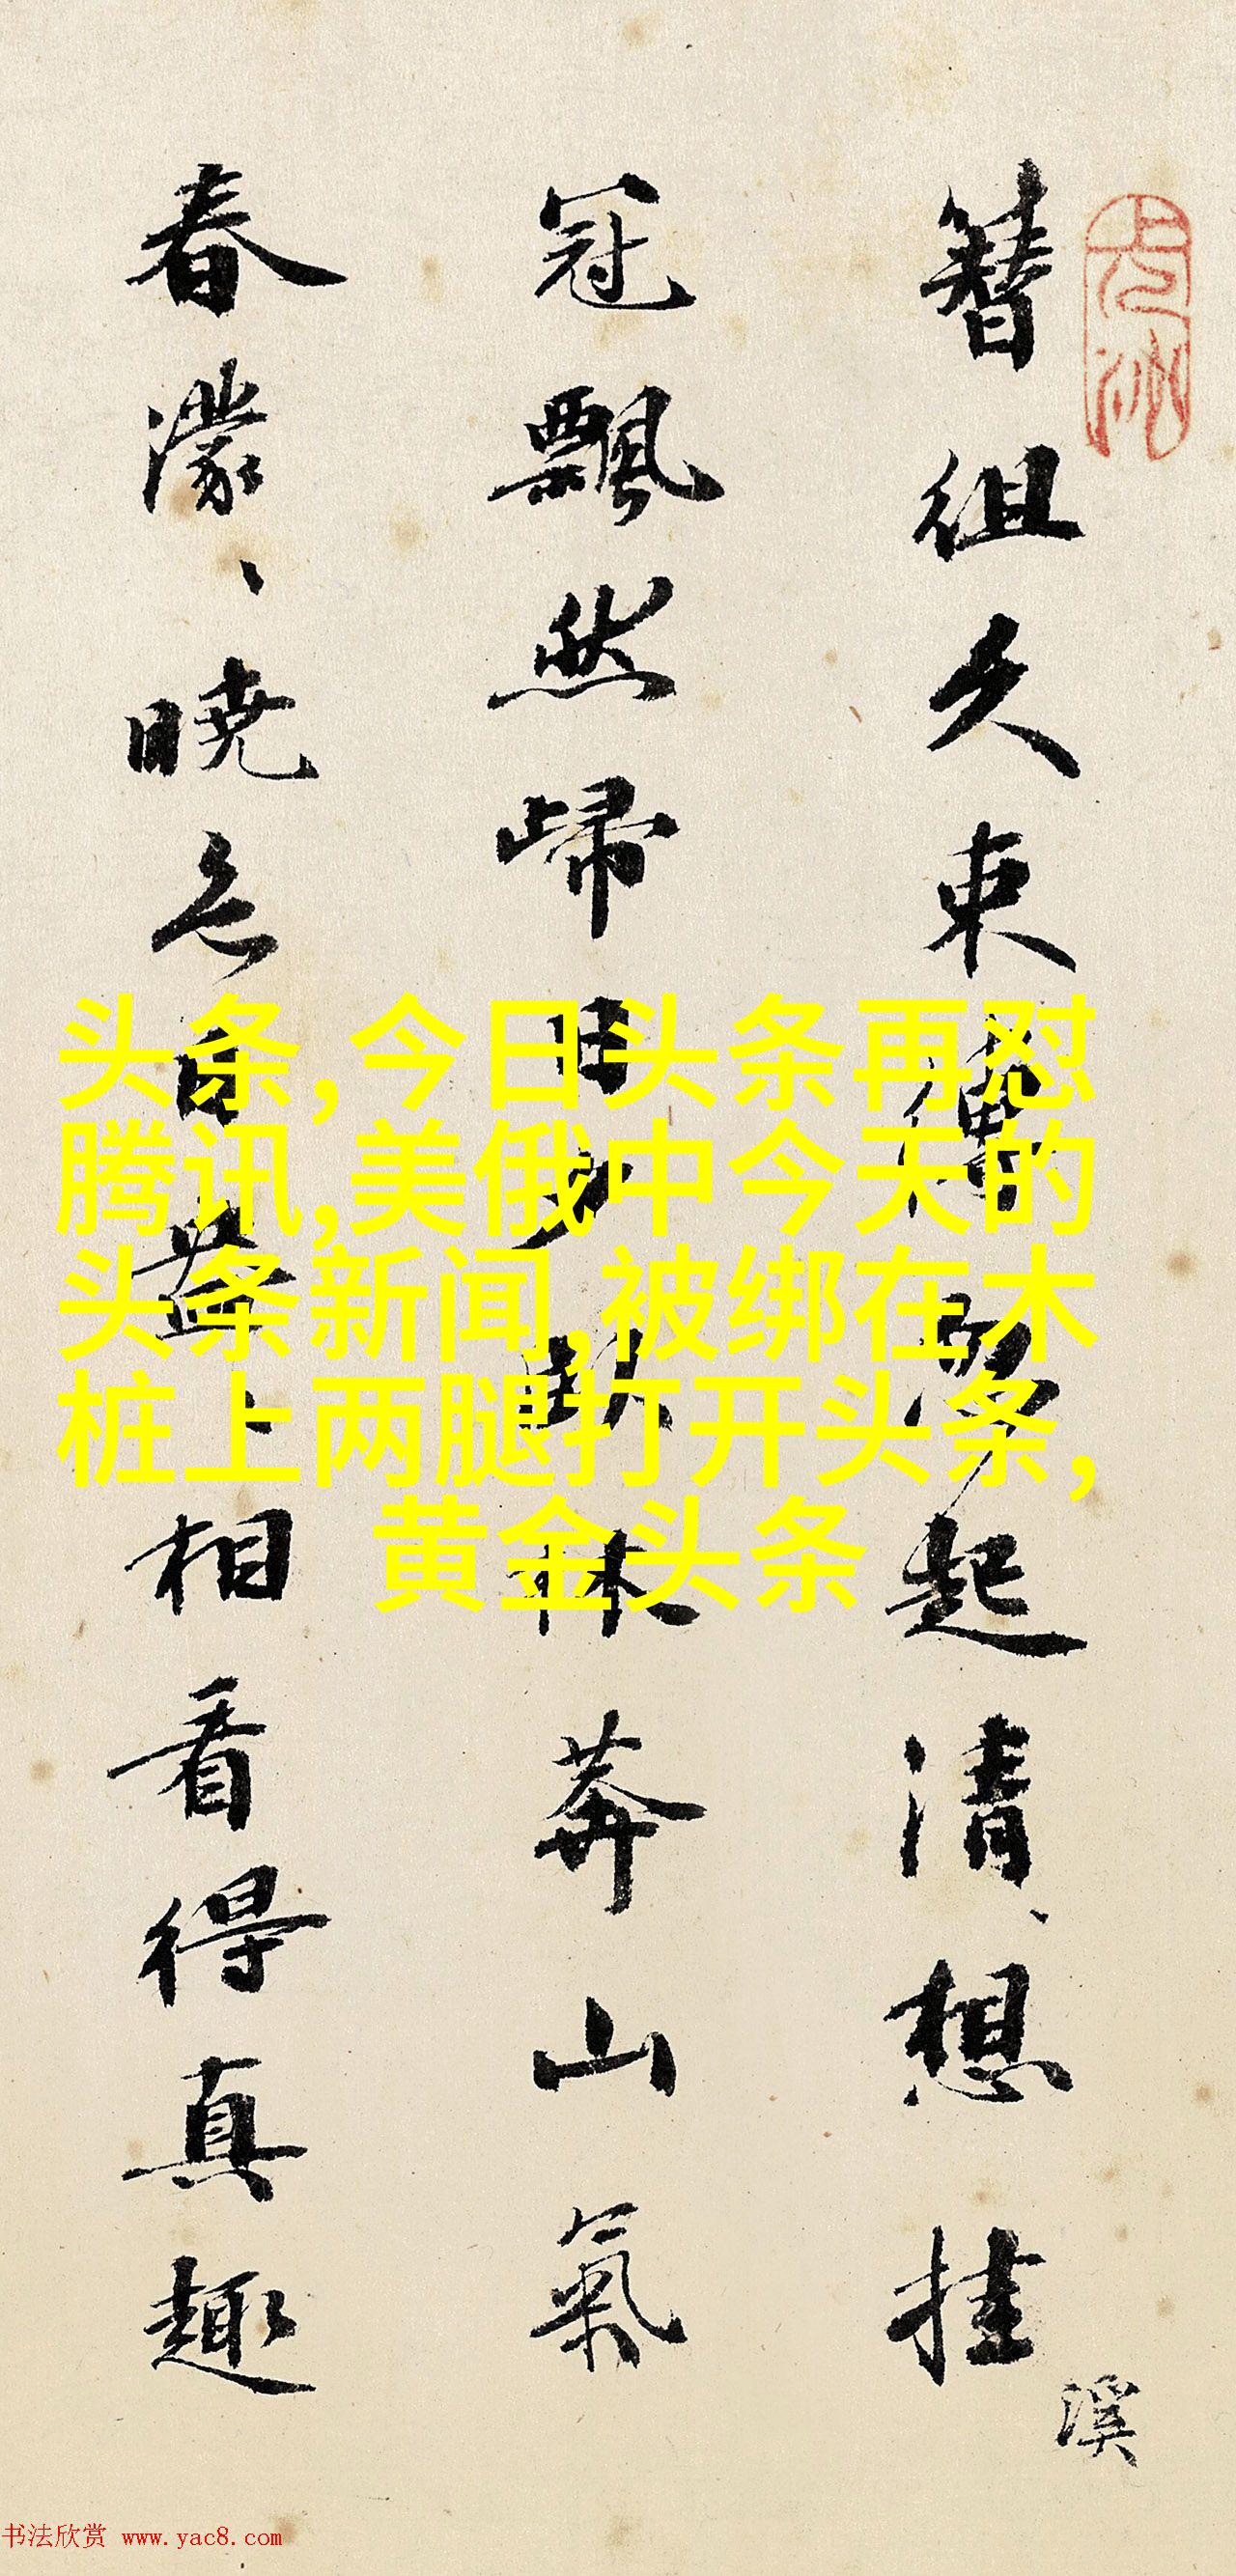 簪组久束缚忽起清想挂
溪
冠飘然歸日夕臥林莽山氣
春濛、晓色日益、相看得真趣
头条,今日头条再怼
腾讯,美俄中今天的
头条新闻,被绑在木
桩上两腿打开头条,
黄金头条
书法欣赏 www.yac8.com